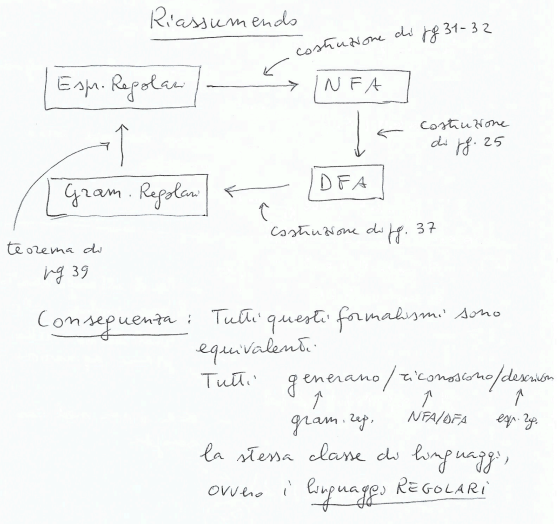 Riassumendo
costruzione di pg 31-32
Espr. Regolari
NFA
costruzione
di pg. 25
Gram. Regolari
DFA
costruzione di pg. 37
teorema di
pg 39
Conseguenza : Tutti questi formalismi sono
equivalenti.
Tutti generano/riconoscono/descrivon
gram. reg. NFA/DFA espr. rg.
la stessa classe di linguaggi,
ovvero i linguaggi REGOLARI